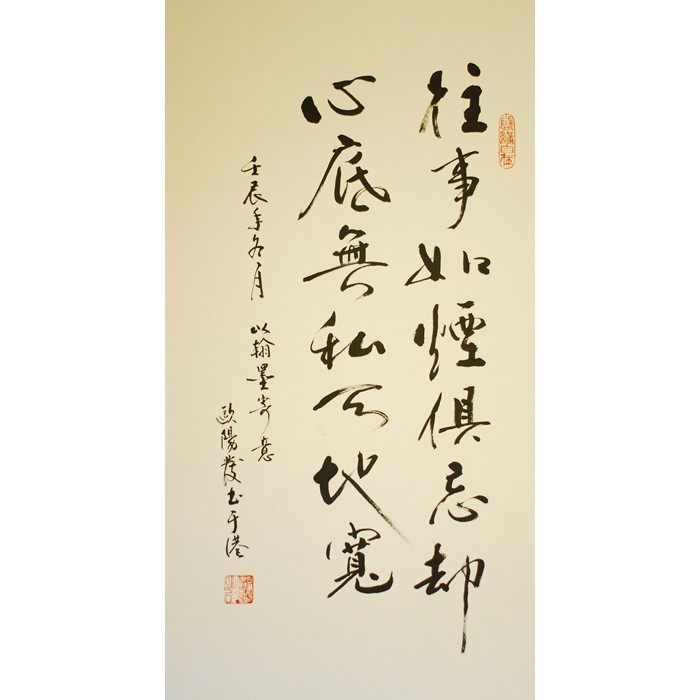 往事如煙俱忘却
心底無私天地寬
壬辰年冬月 以翰墨寄意
歐陽發書于港